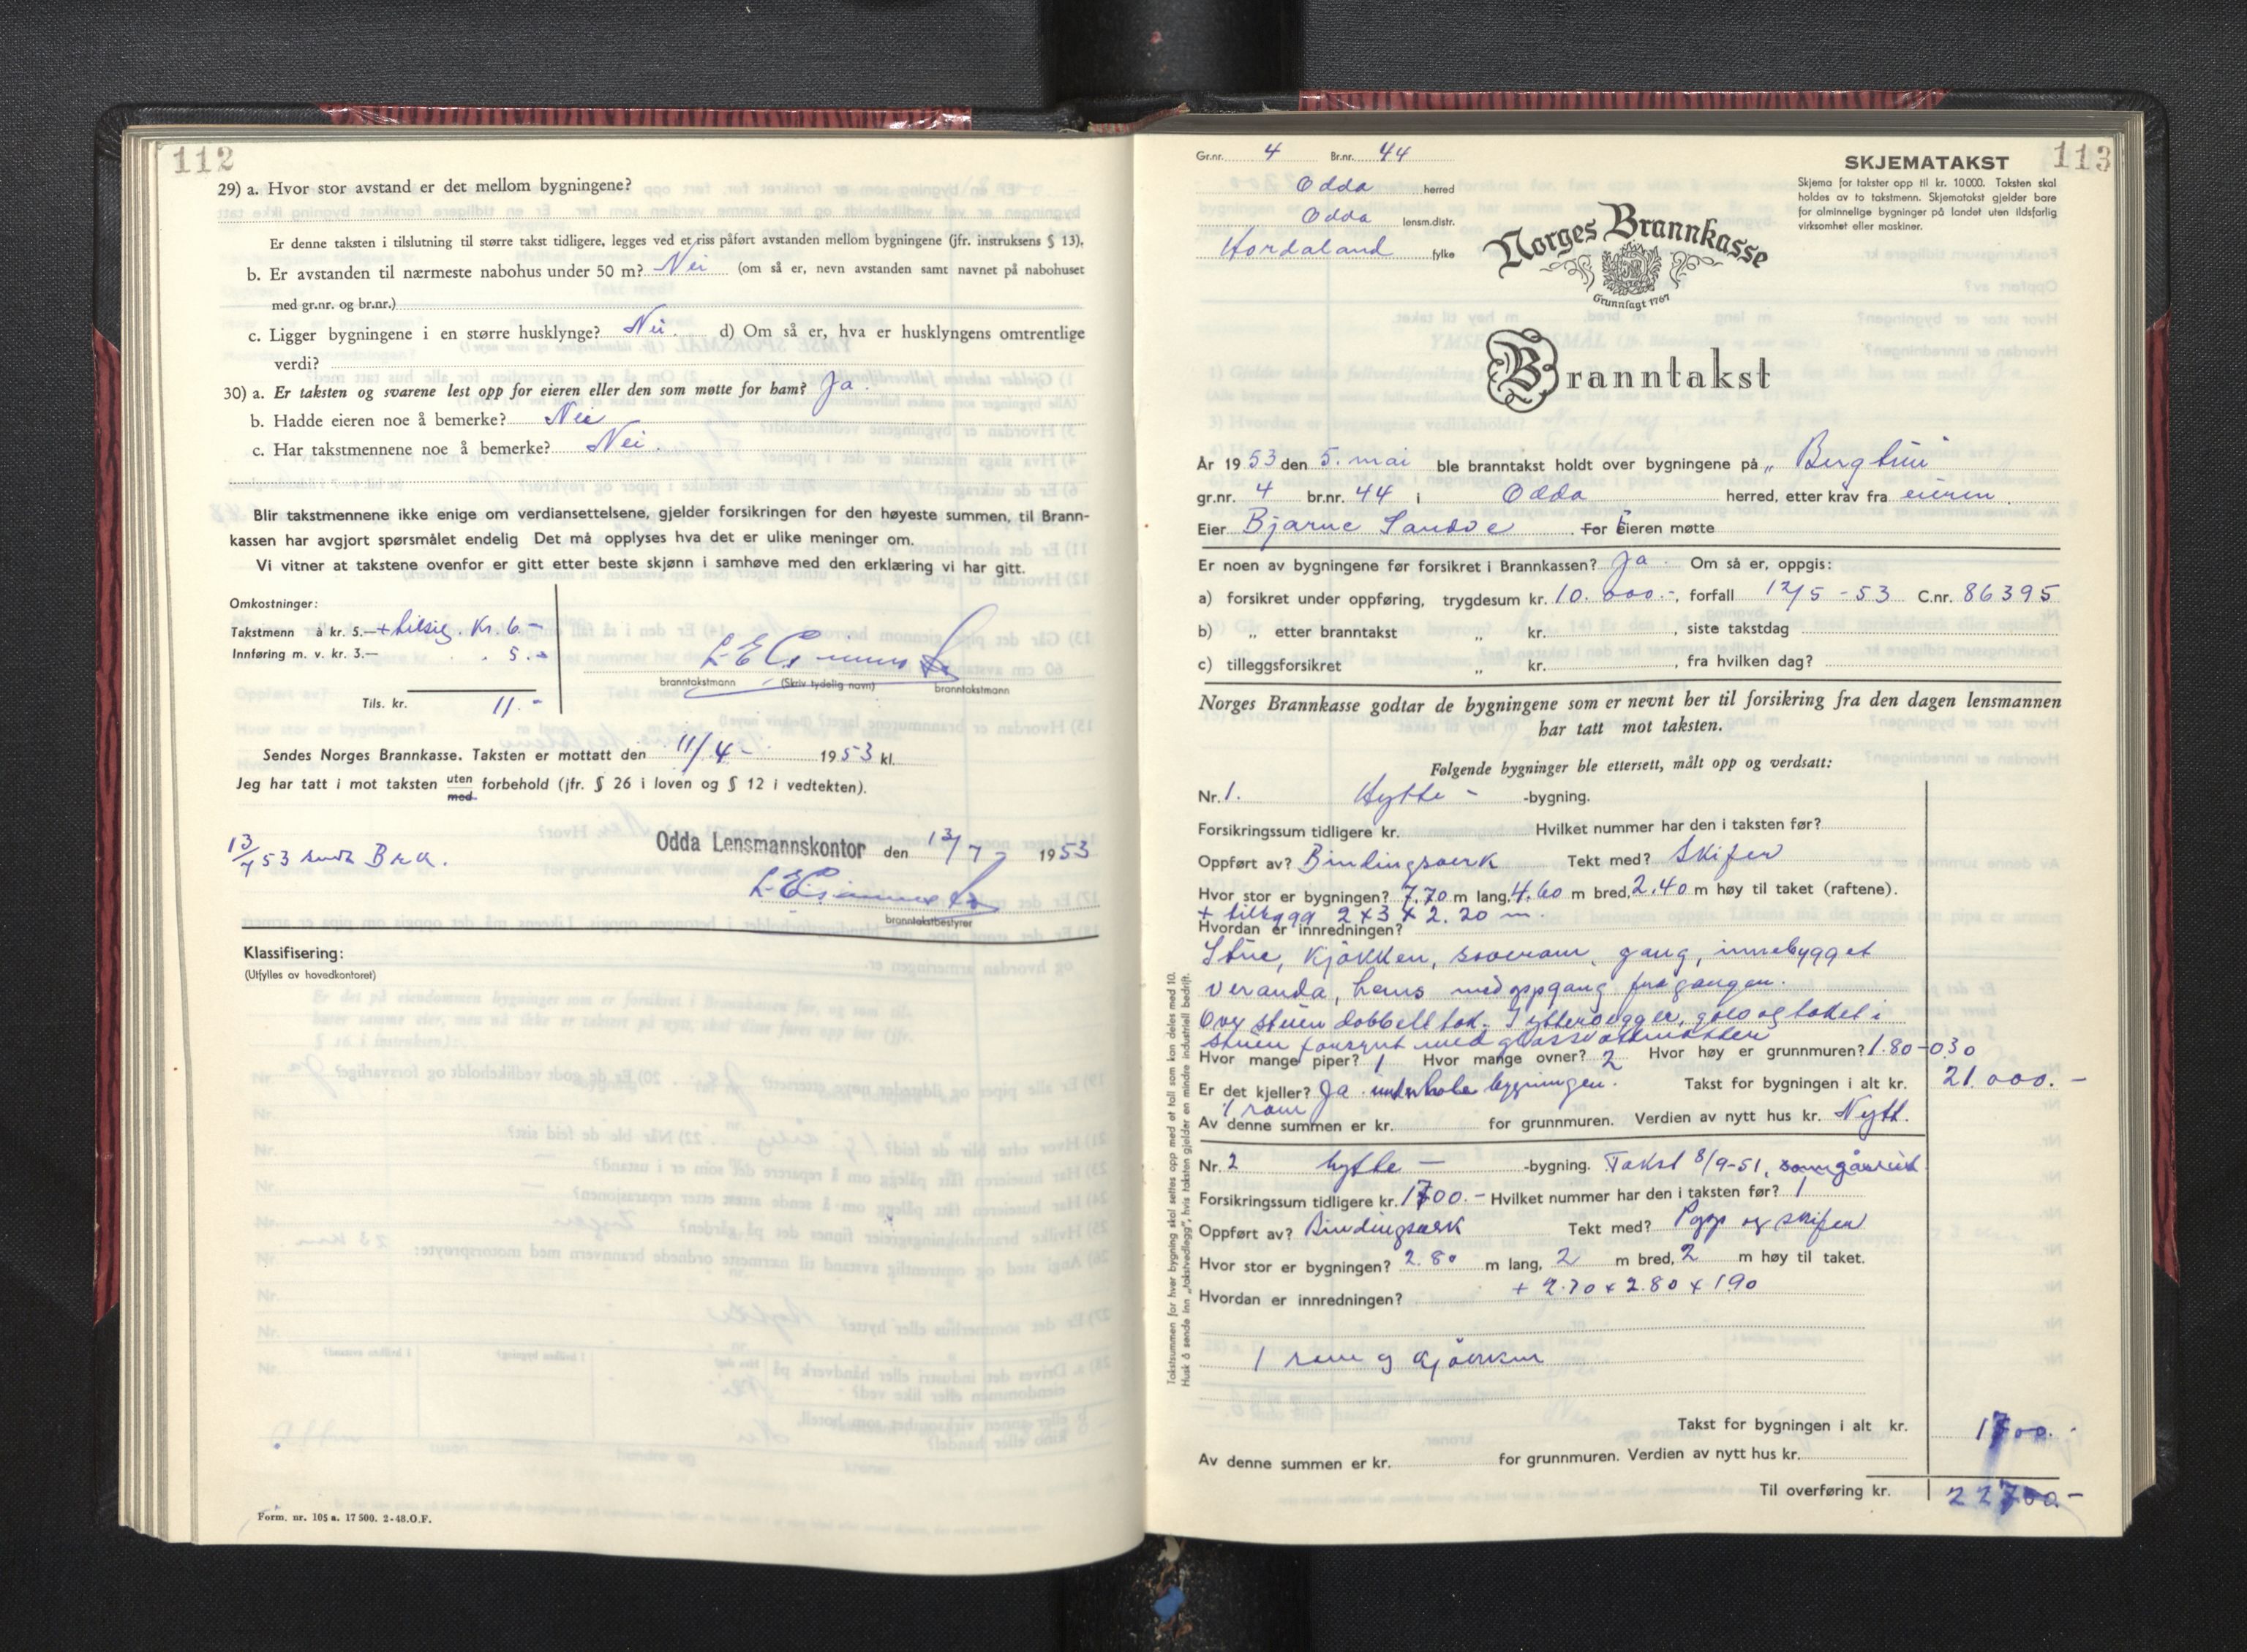 112
29) a. Hvor stor avstand er det mellom bygningene?
Er denne taksten i tilslutning til større takst tidligere, legges ved et riss påført avstanden mellom bygningene (jfr. instruksens § 13).
b. Er avstanden til nærmeste nabohus under 50 m? Nei (om så er, nevn avstanden samt navnet på nabohuset
med gr.nr. og br.nr.)
c. Ligger bygningene i en større husklynge? Nei. d) Om så er, hva er husklyngens omtrentlige
verdi?
30) a. Er taksten og svarene lest opp for eieren eller den som møtte for ham? Ja.
b. Hadde eieren noe å bemerke? Nei
c. Har takstmennene noe å bemerke? Nei.
Blir takstmennene ikke enige om verdiansettelsene, gjelder forsikringen for den høyeste summen, til Brann-
kassen har avgjort spørsmålet endelig Det må opplyses hva det er ulike meninger om.
Vi vitner at takstene ovenfor er gitt etter beste skjønn i samhøve med den erklæring vi har gitt.
Omkostninger:
Takstmenn à kr. 5.— + tilsig. Kr. 6.-
Innføring m. v. kr. 3.— 5.-
branntakstmann (Skriv tydelig navn) branntakstmann
Tils. kr. 11.-
Sendes Norges Brannkasse. Taksten er mottatt den 11/4- 1953 kl.
Jeg har tatt i mot taksten uten med forbehold (jfr. § 26 i loven og § 12 i vedtekten).
13/7 53 sendt Bra.
Odda Lensmannskontor den 13/7 1953
branntakstbestyrer
Klassifisering:
(Utfylles av hovedkontoret)
Form. nr. 105 a. 17 500. 2-48.O.F.
Gr.nr. 4 Br.nr. 44
Odda herred
Odda lensm.distr.
Hordaland fylke
SKJEMATAKST 113
Skjema for takster opp til kr. 10000. Taksten skal
holdes av to takstmenn. Skjematakst gjelder bare
for alminnelige bygninger på landet uten ildsfarlig
virksomhet eller maskiner.
Norges Brannkasse
Grunnlagt 1767
Branntakst
År 1953 den 5. mai ble branntakst holdt over bygningene på „ Bergtun
gr.nr. 4 br.nr. 44 i Odda herred, etter krav fra eieren.
Eier Bjarne Sandve. For Eieren møtte
Er noen av bygningene før forsikret i Brannkassen? Ja. Om så er, oppgis:
a) forsikret under oppføring, trygdesum kr. 10.000.-, forfall 12/5-53 C.nr. 86395
b) „ etter branntakst „ kr. , siste takstdag
c) tilleggsforsikret „ kr. , fra hvilken dag?
Norges Brannkasse godtar de bygningene som er nevnt her til forsikring fra den dagen lensmannen
har tatt mot taksten.
Følgende bygninger ble ettersett, målt opp og verdsatt:
Nr. 1. Hytte - -bygning.
Forsikringssum tidligere kr. Hvilket nummer har den i taksten før?
Oppført av? Bindingsverk Tekt med? Skifer
Hvor stor er bygningen? 7,70 m lang, 4.60 m bred, 2.40 m høy til taket (raftene).
+ tilbygg 2 x 3 x 2.20 m.
Hvordan er innredningen?
Stue, kjøkken, soverom, gang, innebygget
veranda, hems med oppgang fra gangen.
Over stuen dobbelt tak. I yttervegger, golv og taket i
stuen forsynt med glassvattmatter
Hvor mange piper? 1 Hvor mange ovner? 2 Hvor høy er grunnmuren? 1.80-0.30
Er det kjeller? Ja. under hele bygningen. Takst for bygningen i alt kr. 21.000.-
1 rom
Av denne summen er kr. for grunnmuren. Verdien av nytt hus kr. Nytt.
Nr. 2 hytte - -bygning. Takst 8/9-51,
Forsikringssum tidligere kr. 1700.- Hvilket nummer har den i taksten før? 1
Oppført av? Bindingsverk Tekt med? Papp og skifer
Hvor stor er bygningen? 2.80 m lang, 2 m bred, 2 m høy til taket.
+ 2.70 x 2.80 x 1.90
Hvordan er innredningen?
1 rom og kjøkken
Takst for bygningen i alt kr. 1700.-
Av denne summen er kr. for grunnmuren. Verdien av nytt hus kr.
Til overføring kr. 22700.-
Takstsummen for hver bygning skal settes opp med et tall som kan deles med 10.
Husk å sende inn „takstvedlegg", hvis taksten gjelder en mindre industriell bedrift.